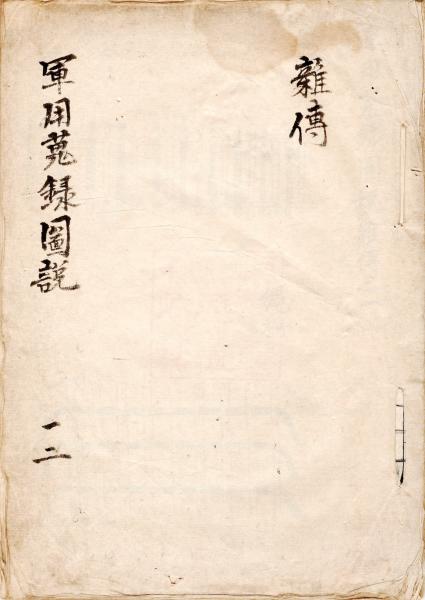 雜傳
軍用蒐録圖説
一二